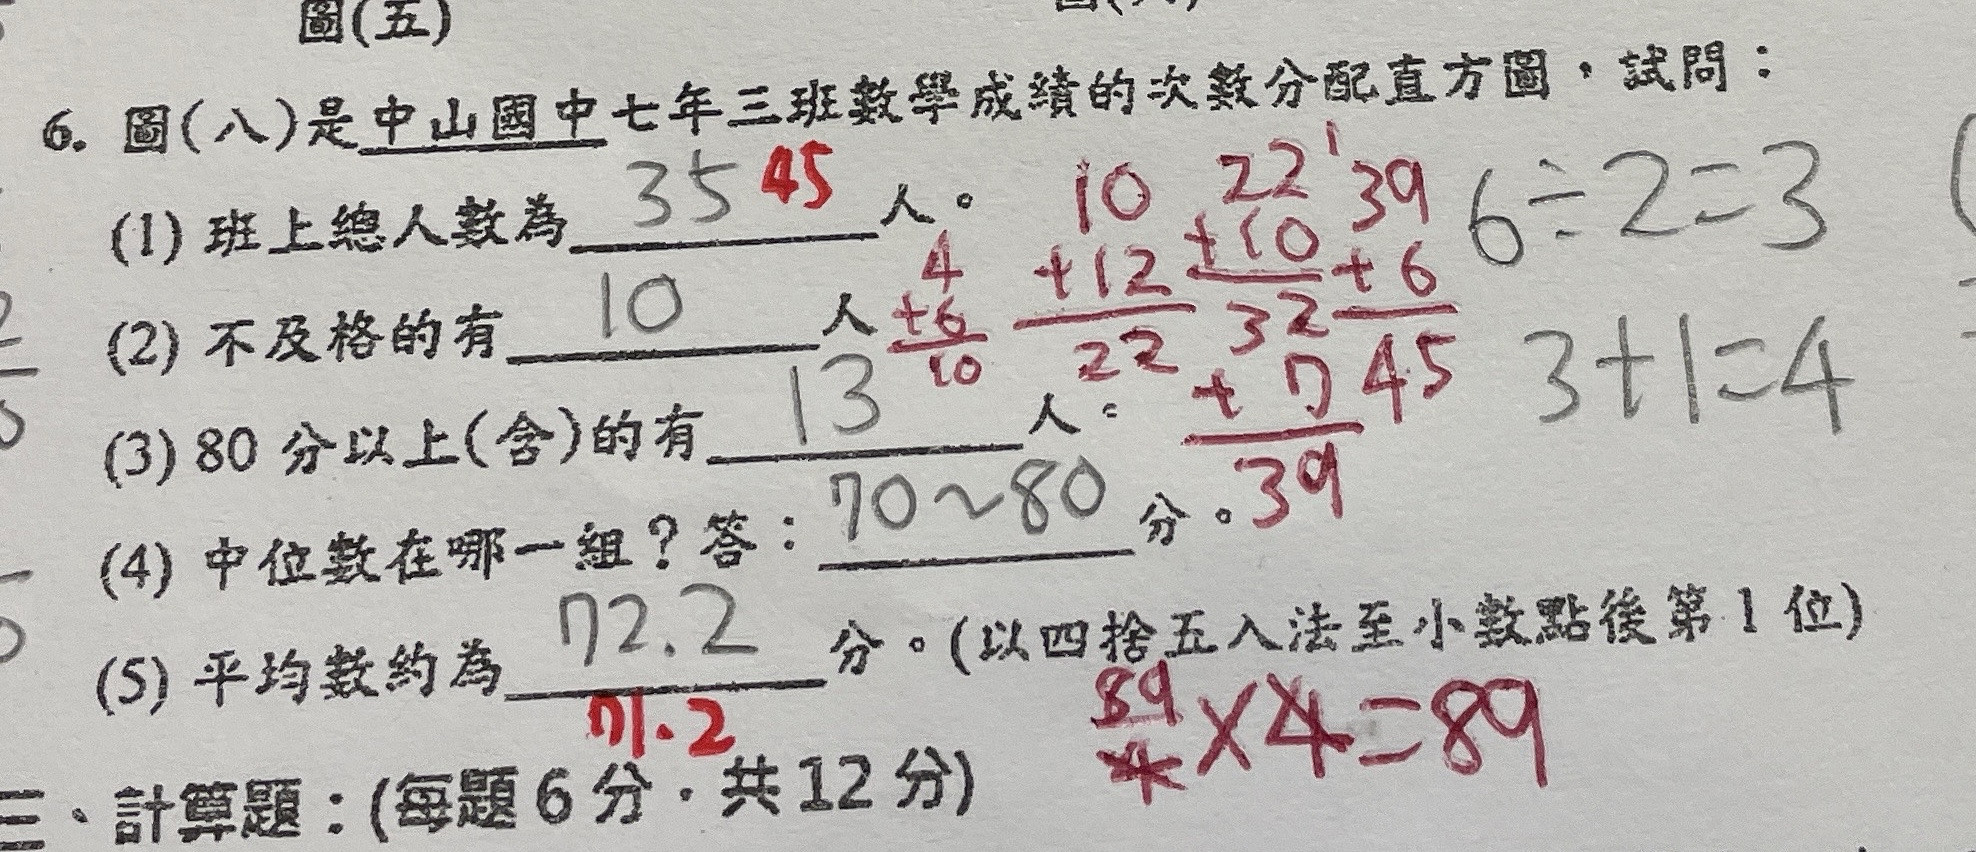 圖(五)
6. 圖(八)是中山國中七年三班數學成績的次數分配直方圖，試問：
(1) 班上總人數為 35 45 人。
(2) 不及格的有 10 人
(3) 80 分以上(含)的有 13 人。
(4) 中位數在哪一組？答： 70～80 分。
(5) 平均數約為 72.2 分。(以四捨五入法至小數點後第 1 位)
71.2
三、計算題：(每題 6 分，共 12 分)
4
+6
10
10
+12
22
22
+10
32
+7
39
1
39
+6
45
6÷2=3
3+1=4
89
4
×4=89